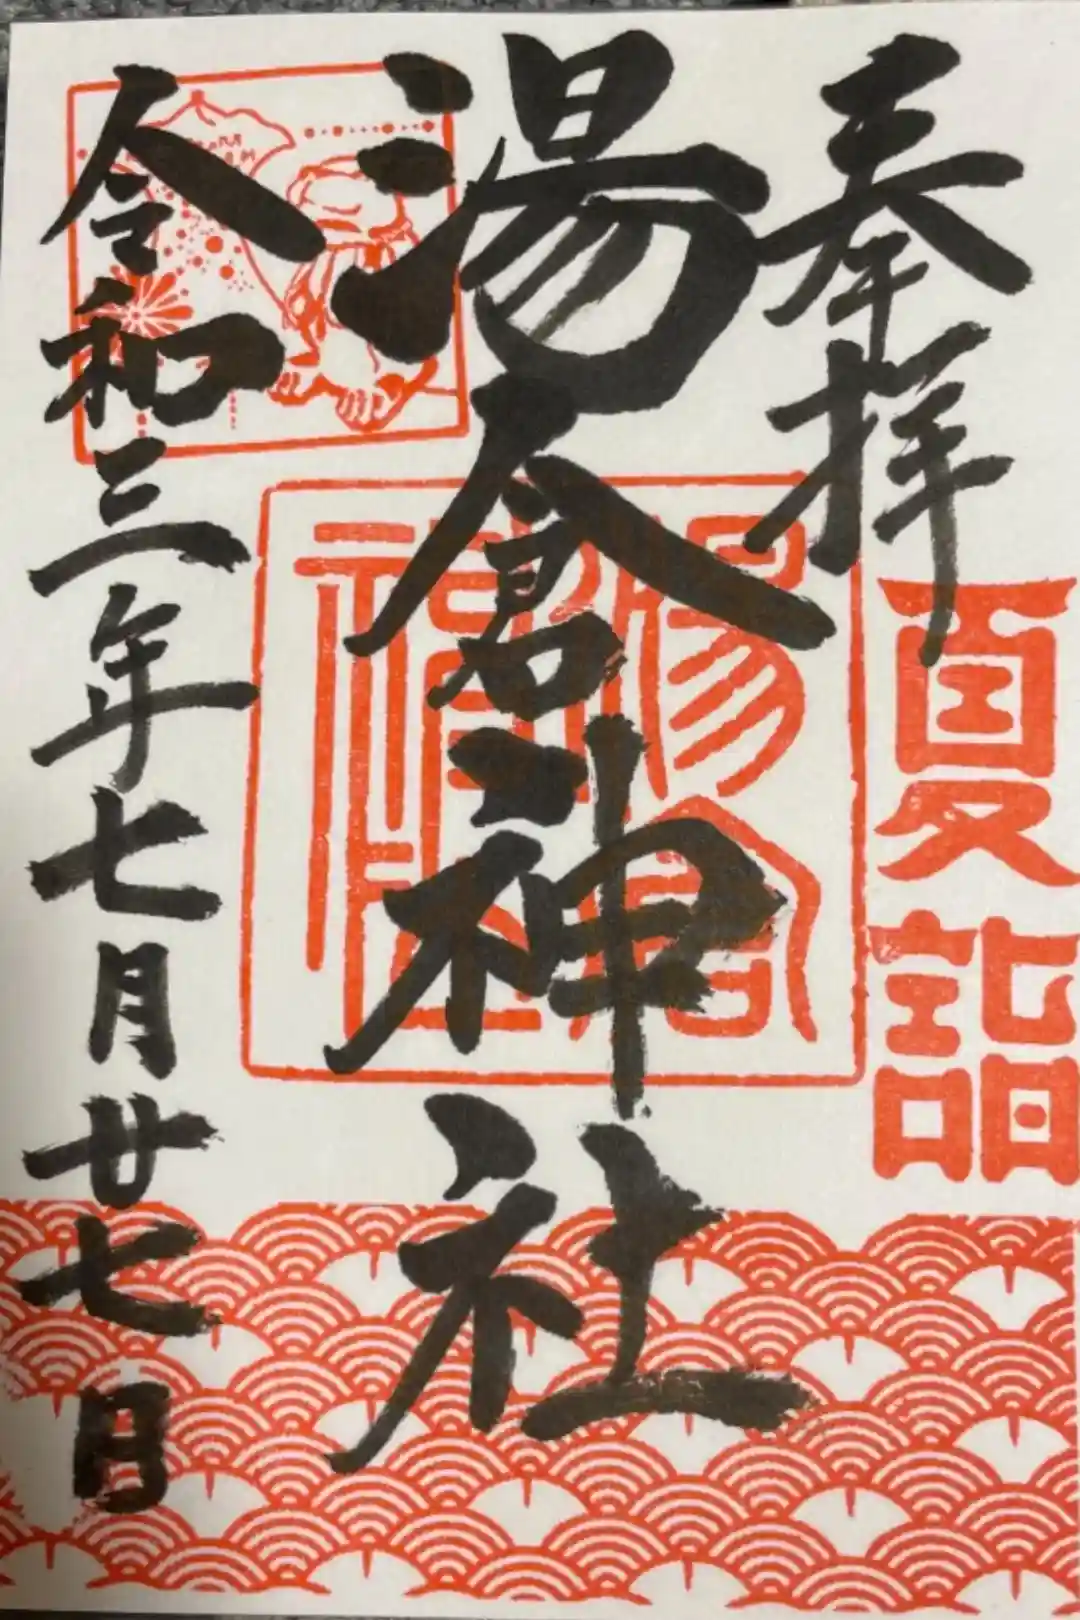 奉拝
夏詣
湯倉神社
湯倉神社
令和三年七月廿七日